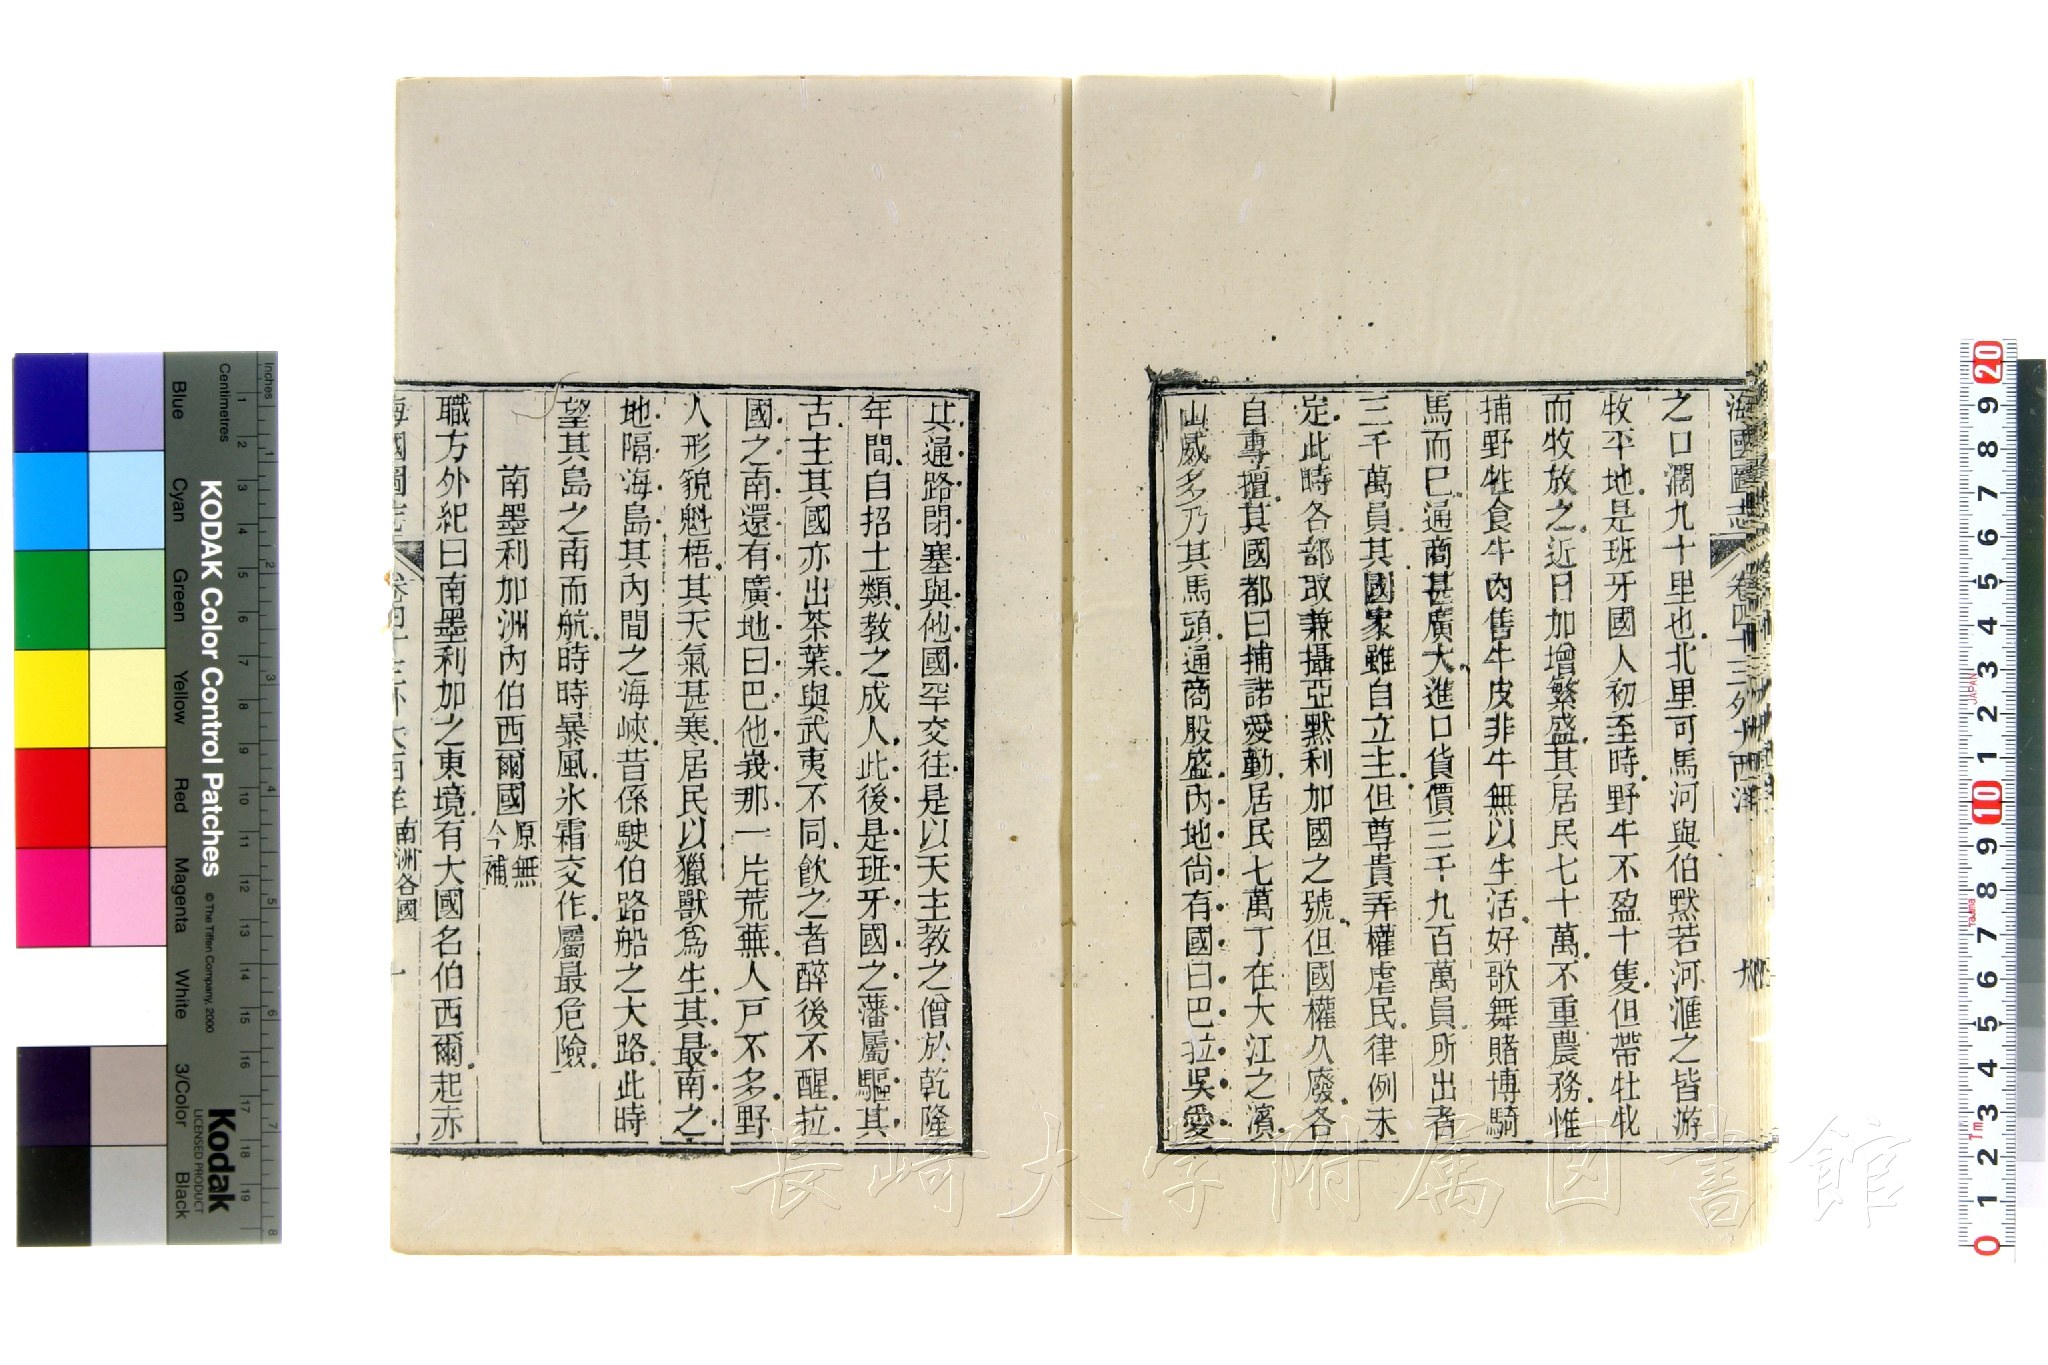 海國圖志 卷四十三 外大西洋 九
之口濶九十里也北里可馬河與伯默若河滙之皆游
牧平地是班牙國人初至時野牛不盈十隻但帶牡牝
而牧放之近日加增繁盛其居民七十萬不重農務惟
捕野牲食牛肉售牛皮非牛無以生活好歌舞賭博騎
馬而巳通商甚廣大進口貨價三千九百萬員所出者
三千萬員其國家雖自立主但尊貴弄權虐民律例未
定此時各部取兼攝亞黙利加國之號但國權久廢各
自專擅其國都曰捕諾愛勤居民七萬丁在大江之濱
山威多乃其馬頭通商殷盛內地尙有國曰巴拉吳愛
其通路閉塞與他國罕交往是以天主教之僧於乾隆
年間自招土類教之成人此後是班牙國之藩屬驅其
古主其國亦出茶葉與武夷不同飮之者醉後不醒拉
國之南還有廣地曰巴他峩那一片荒蕪人戸不多野
人形貌魁梧其天氣甚寒居民以獵獸爲生其最南之
地隔海島其內間之海峽昔係駛伯路船之大路此時
望其島之南而航時時暴風氷霜交作屬最危險
南墨利加洲內伯西爾國 原無今補
職方外紀曰南墨利加之東境有大國名伯西爾起赤
海國圖志 卷四十三 外大西洋 南洲各國 十
KODAK Color Control Patches
© The Tiffen Company, 2000
Kodak
LICENSED PRODUCT
Inches
Centimetres
Blue Cyan Green Yellow Red Magenta White 3/Color Black
長崎大学附属図書館